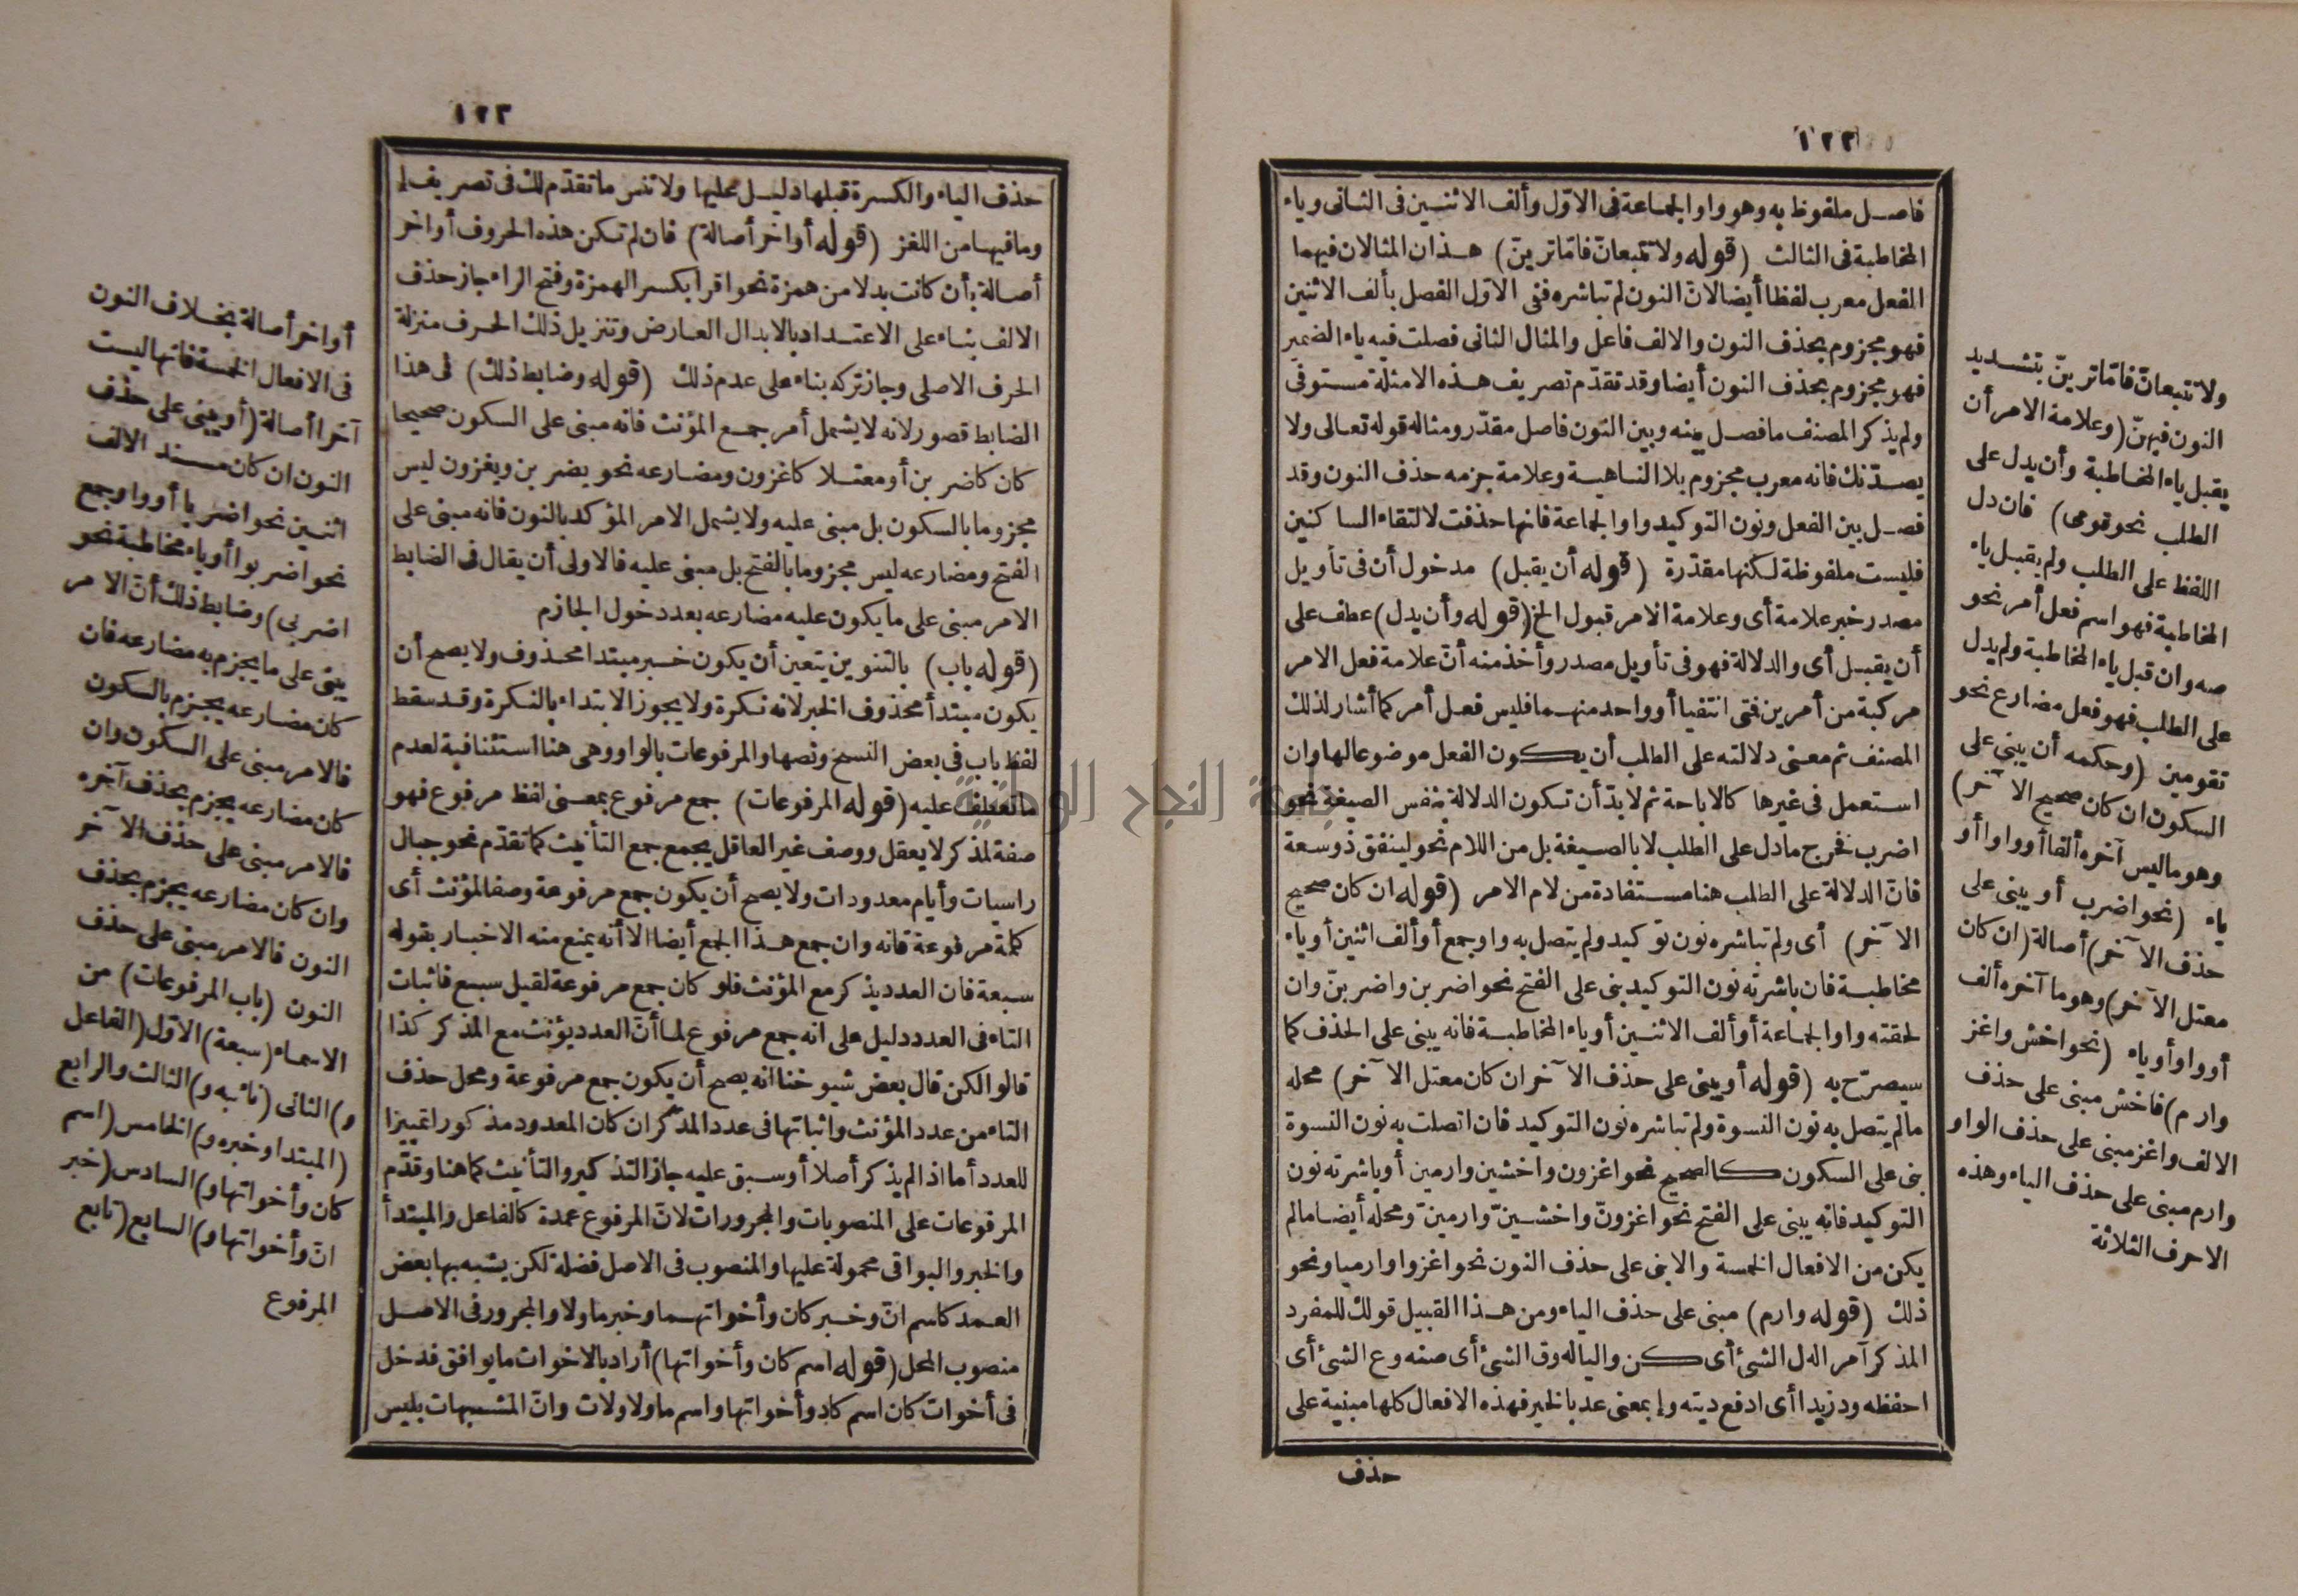 ١٢٢
فاصل ملفوظ به وهو واو الجماعة فى الاوّل وألف الاثنين فى الثانى وياء
المخاطبة فى الثالث (قوله ولا تتبعانّ فامّا ترينّ) هذان المثالان فيهما
الفعل معرب لفظا أيضا لانّ النون لم تباشره ففى الاوّل الفصل بألف الاثنين
فهو مجزوم بحذف النون والالف فاعل والمثال الثانى فصلت فيه ياء الضمير
فهو مجزوم بحذف النون أيضا وقد تقدّم تصريف هذه الامثلة مستوفى
ولم يذكر المصنف ما فصل بينه وبين النون فاصل مقدّر ومثاله قوله تعالى ولا
يصدّنك فانه معرب مجزوم بلا الناهية وعلامة جزمه حذف النون وقد
فصل بين الفعل ونون التوكيد واو الجماعة فانها حذفت لالتقاء الساكنين
فليست ملفوظة لكنها مقدّرة (قوله أن يقبل) مدخول أن فى تأويل
مصدر خبر علامة أى وعلامة الامر قبول الخ (قوله وأن يدل) عطف على
أن يقبل أى والدلالة فهو فى تأويل مصدر وأخذ منه أنّ علامة فعل الامر
مركبة من أمرين فتى انتفيا أو واحد منهما فليس فعل أمر كما أشار لذلك
المصنف ثم معنى دلالته على الطلب أن يكون الفعل موضوعا لها وان
استعمل فى غيرها كالاباحة ثم لا بدّ أن تكون الدلالة بنفس الصيغة نحو
اضرب فخرج ما دل على الطلب لا بالصيغة بل من اللام نحو لينفق ذو سعة
فانّ الدلالة على الطلب هنا مستفادة من لام الامر (قوله ان كان صحيح
الآخر) أى ولم تباشره نون توكيد ولم يتصل به واو جمع أو ألف اثنين أو ياء
مخاطبة فان باشرته نون التوكيد بنى على الفتح نحو اضربن واضربنّ وان
لحقته واو الجماعة أو ألف الاثنين أو ياء المخاطبة فانه يبنى على الحذف كما
سيصرّح به (قوله أو يبنى على حذف الآخر ان كان معتل الآخر) محله
ما لم يتصل به نون النسوة ولم تباشره نون التوكيد فان اتصلت به نون النسوة
بنى على السكون كالصحيح نحو اغزون واخشين وارمين أو باشرته نون
التوكيد فانه يبنى على الفتح نحو اغزونّ واخشينّ وارمينّ ومحله أيضا ما لم
يكن من الافعال الخمسة والا بنى على حذف النون نحو اغزوا وارميا ونحو
ذلك (قوله وارم) مبنى على حذف الياء ومن هذا القبيل قولك للمفرد
المذكر آمرا له ل الشئ أى كن واليا له وق الشئ أى صنه وع الشئ أى
احفظه ود زيدا أى ادفع ديته وإ بمعنى عد بالخير فهذه الافعال كلها مبنية على
حذف
ولا تتبعانّ فامّا ترينّ بتشديد
النون فيهنّ (وعلامة الامر أن
يقبل ياء المخاطبة وأن يدل على
الطلب نحو قومى) فان دل
اللفظ على الطلب ولم يقبل ياء
المخاطبة فهو اسم فعل أمر نحو
صه وان قبل ياء المخاطبة ولم يدل
على الطلب فهو فعل مضارع نحو
تقومين (وحكمه أن يبنى على
السكون ان كان صحيح الآخر)
وهو ما ليس آخره ألفا أو واوا أو
ياء (نحو اضرب أو يبنى على
حذف الآخر) أصالة (ان كان
معتل الآخر) وهو ما آخره ألف
أو واو أو ياء (نحو اخش واغز
وارم) فاخش مبنى على حذف
الالف واغز مبنى على حذف الواو
وارم مبنى على حذف الياء وهذه
الاحرف الثلاثة
١٢٣
حذف الياء والكسرة قبلها دليل عليها ولا تنس ما تقدّم لك فى تصريف إ
وما فيها من اللغز (قوله أواخر أصالة) فان لم تكن هذه الحروف أواخر
أصالة بأن كانت بدلا من همزة نحو اقرا بكسر الهمزة وفتح الراء جاز حذف
الالف بناء على الاعتداد بالابدال العارض وتنزيل ذلك الحرف منزلة
الحرف الاصلى وجاز تركه بناء على عدم ذلك (قوله وضابط ذلك) فى هذا
الضابط قصور لانه لا يشمل أمر جمع المؤنث فانه مبنى على السكون صحيحا
كان كاضربن أو معتلا كاغزون ومضارعه نحو يضربن ويغزون ليس
مجزوما بالسكون بل مبنى عليه ولا يشمل الامر المؤكد بالنون فانه مبنى على
الفتح ومضارعه ليس مجزوما بالفتح بل مبنى عليه فالاولى أن يقال فى الضابط
الامر مبنى على ما يكون عليه مضارعه بعد دخول الجازم
(قوله باب) بالتنوين يتعين أن يكون خبر مبتدا محذوف ولا يصح أن
يكون مبتدأ محذوف الخبر لانه نكرة ولا يجوز الابتداء بالنكرة وقد سقط
لفظ باب فى بعض النسخ ونصها والمرفوعات بالواو وهى هنا استئنافية لعدم
ما تعطف عليه (قوله المرفوعات) جمع مرفوع بمعنى لفظ مرفوع فهو
صفة لمذكر لا يعقل ووصف غير العاقل يجمع جمع التأنيث كما تقدّم نحو جبال
راسيات وأيام معدودات ولا يصح أن يكون جمع مرفوعة وصفا لمؤنث أى
كلمة مرفوعة فانه وان جمع هذا الجمع أيضا الا أنه يمنع منه الاخبار بقوله
سبعة فان العدد يذكر مع المؤنث فلو كان جمع مرفوعة لقيل سبع فاثبات
التاء فى العدد دليل على انه جمع مرفوع لما أنّ العدد يؤنث مع المذكر كذا
قالوا لكن قال بعض شيوخنا انه يصح أن يكون جمع مرفوعة ومحل حذف
التاء من عدد المؤنث واثباتها فى عدد المذكر ان كان المعدود مذكورا تمييزا
للعدد أما اذا لم يذكر أصلا أو سبق عليه جاز التذكير والتأنيث كما هنا وقدّم
المرفوعات على المنصوبات والمجرورات لانّ المرفوع عمدة كالفاعل والمبتدأ
والخبر والبواقى محمولة عليها والمنصوب فى الاصل فضلة لكن يشبه بها بعض
العمد كاسم انّ وخبر كان وأخواتهما وخبر ما ولا والمجرور فى الاصل
منصوب المحل (قوله اسم كان وأخواتها) أراد بالاخوات ما يوافق فدخل
فى أخوات كان اسم كاد وأخواتها واسم ما ولا ولات وانّ المشبهات بليس
أواخر أصالة بخلاف النون
فى الافعال الخمسة فانها ليست
آخرا أصالة (أو يبنى على حذف
النون ان كان مسند الالف
اثنين نحو اضربا أو واو جمع
نحو اضربوا أو ياء مخاطبة نحو
اضربى) وضابط ذلك أنّ الامر
يبنى على ما يجزم به مضارعه فان
كان مضارعه يجزم بالسكون
فالامر مبنى على السكون وان
كان مضارعه يجزم بحذف آخره
فالامر مبنى على حذف الآخر
وان كان مضارعه يجزم بحذف
النون فالامر مبنى على حذف
النون (باب المرفوعات) من
الاسماء (سبعة) الاوّل (الفاعل
و) الثانى (نائبه و) الثالث والرابع
(المبتدا وخبره و) الخامس (اسم
كان وأخواتها و) السادس (خبر
انّ وأخواتها و) السابع (تابع
المرفوع
جامعة النجاح الوطنية